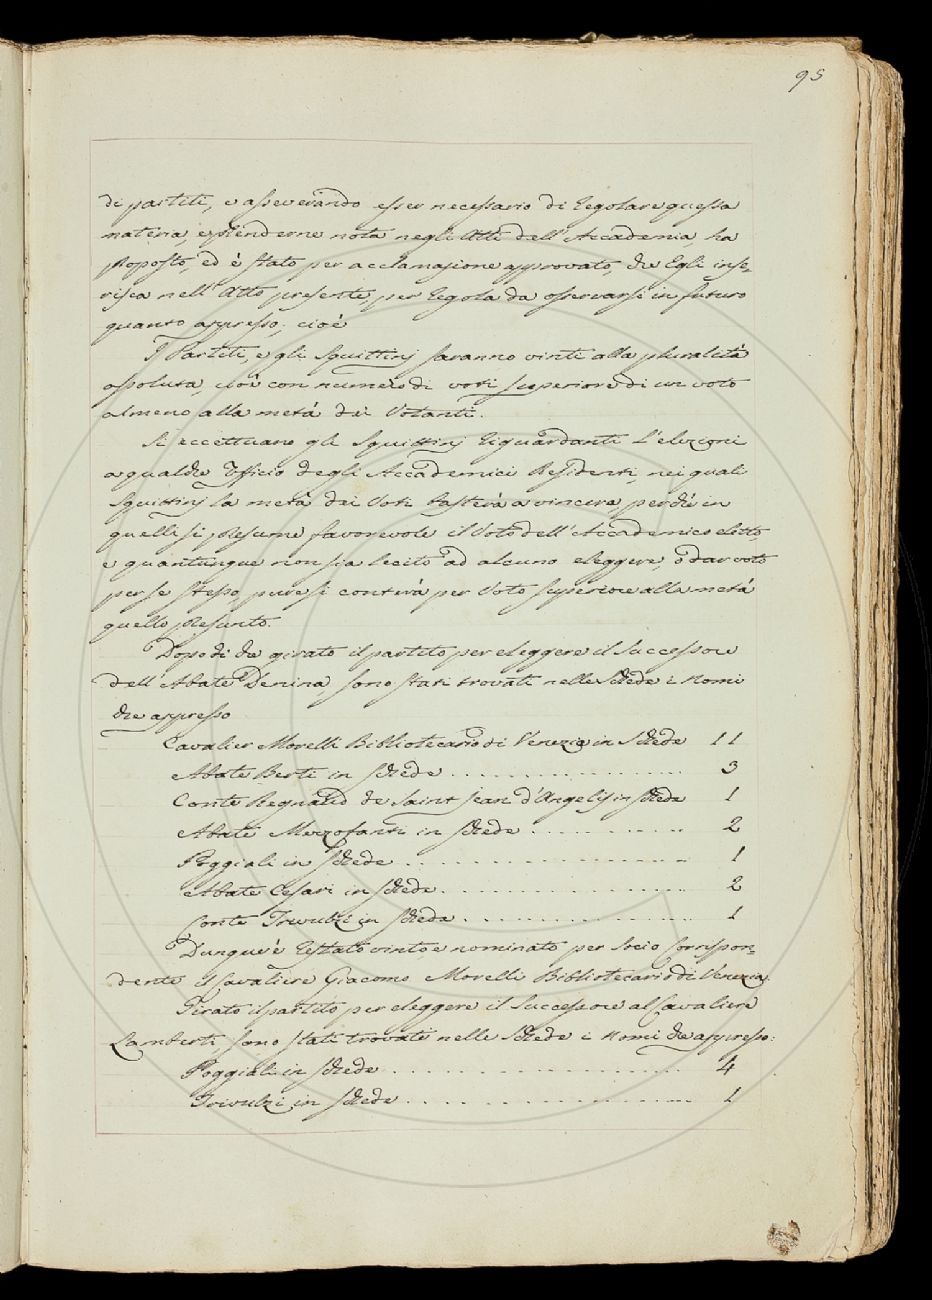 95
di partiti, e asseverando esser necessario di regolare questa
materia, e prenderne nota negli Atti dell' Accademia, ha
proposto, ed è stato per acclamazione approvato, che Egli inse-
risca nell' Atto presente, per regola da osservarsi in futuro
quanto appresso; cioè
I Partiti, e gli Squittinj saranno vinti alla pluralità
assoluta, cioè con numero di voti superiore di un voto
almeno alla metà dei Votanti.
Si eccettuano gli Squittinj riguardanti l'elezioni
a qualche Ufficio degli Accademici Residenti, nei quali
Squittinj la metà dei Voti basterà a vincere, perchè in
quelli si presume favorevole il Voto dell' Accademico eletto,
e quantunque non sia lecito ad alcuno eleggere, ò dar voto
per se stesso, pure si conterà per Voto superiore alla metà
quello presunto.
Dopo di che girato il partito per eleggere il Successore
dell' Abate Denina, sono stati trovati nelle Schede i nomi
che appresso
Cavalier Morelli Bibliotecario di Venezia in Schede 11
Abate Berti in schede 3
Conte Regnaud de Saint Jean d'Angelij in scheda 1
Abate Mezzofanti in schede 2
Poggiali in schede 1
Abate Cesari in schede 2
Conte Trivulzi in scheda 1
Dunque è restato vinto e nominato per Socio Corrispon-
dente il Cavaliere Giacomo Morelli Bibliotecario di Venezia.
Girato il partito per eleggere il Successore al Cavaliere
Lamberti, sono stati trovati nelle Schede i nomi che appresso:
Poggiali in schede 4
Trivulzi in schede 1